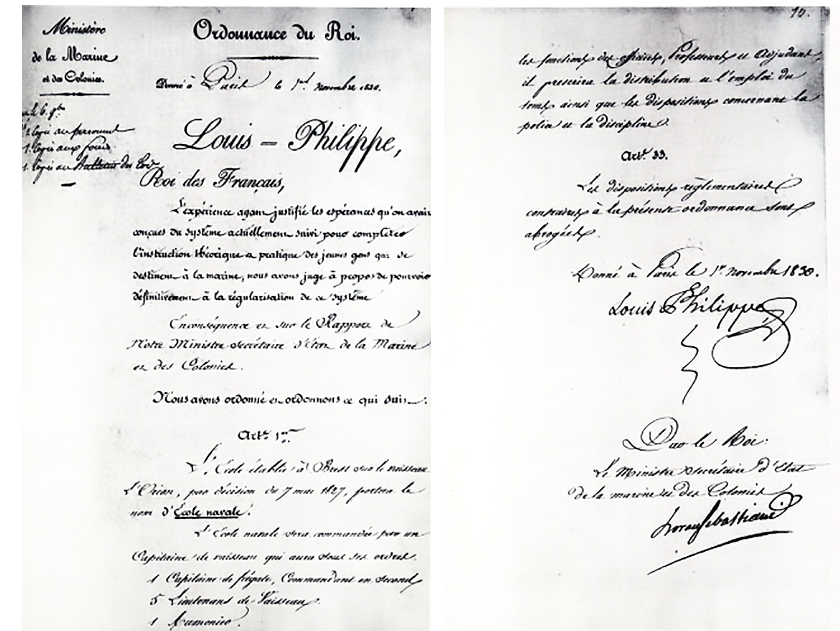 Ministère
de la Marine
et des Colonies.
Ordonnance du Roi.
Donné à Paris le 1er Novembre 1830.
1 Copie au personnel
1 Copie aux fonds
1 Copie au Bulletin des Lois
Louis = Philippe,
Roi des Français,
L'expérience ayant justifié les espérances qu'on avait
conçues du système actuellement suivi pour compléter
l'instruction théorique et pratique des jeunes gens qui se
destinent à la marine, nous avons jugé à propos de pourvoir
définitivement à la régularisation de ce système
En conséquence et sur le Rapport de
Notre Ministre Secrétaire d'Etat de la Marine
et des Colonies.
Nous avons ordonné et ordonnons ce qui suit:
Art. 1er
L'École établie à Brest sur le vaisseau
L'Orion, par décision du 7 mai 1827, portera le
nom d'École navale.
L'École navale sera commandée par un
Capitaine de vaisseau qui aura sous ses ordres.
1 Capitaine de frégate, Commandant en second
5 Lieutenans de Vaisseau.
1 Aumonier.
les fonctions des officiers, Professeurs et Adjudans,
il prescrira la distribution et l'emploi du
tems ainsi que les dispositions concernant la
police et la discipline.
Art. 33.
Les dispositions règlementaires
contraires à la présente ordonnance sont
abrogées.
Donné à Paris le 1er Novembre 1830.
Louis Philippe
Par le Roi:
Le Ministre Secrétaire d'Etat
de la marine et des Colonies
Horace Sébastiani